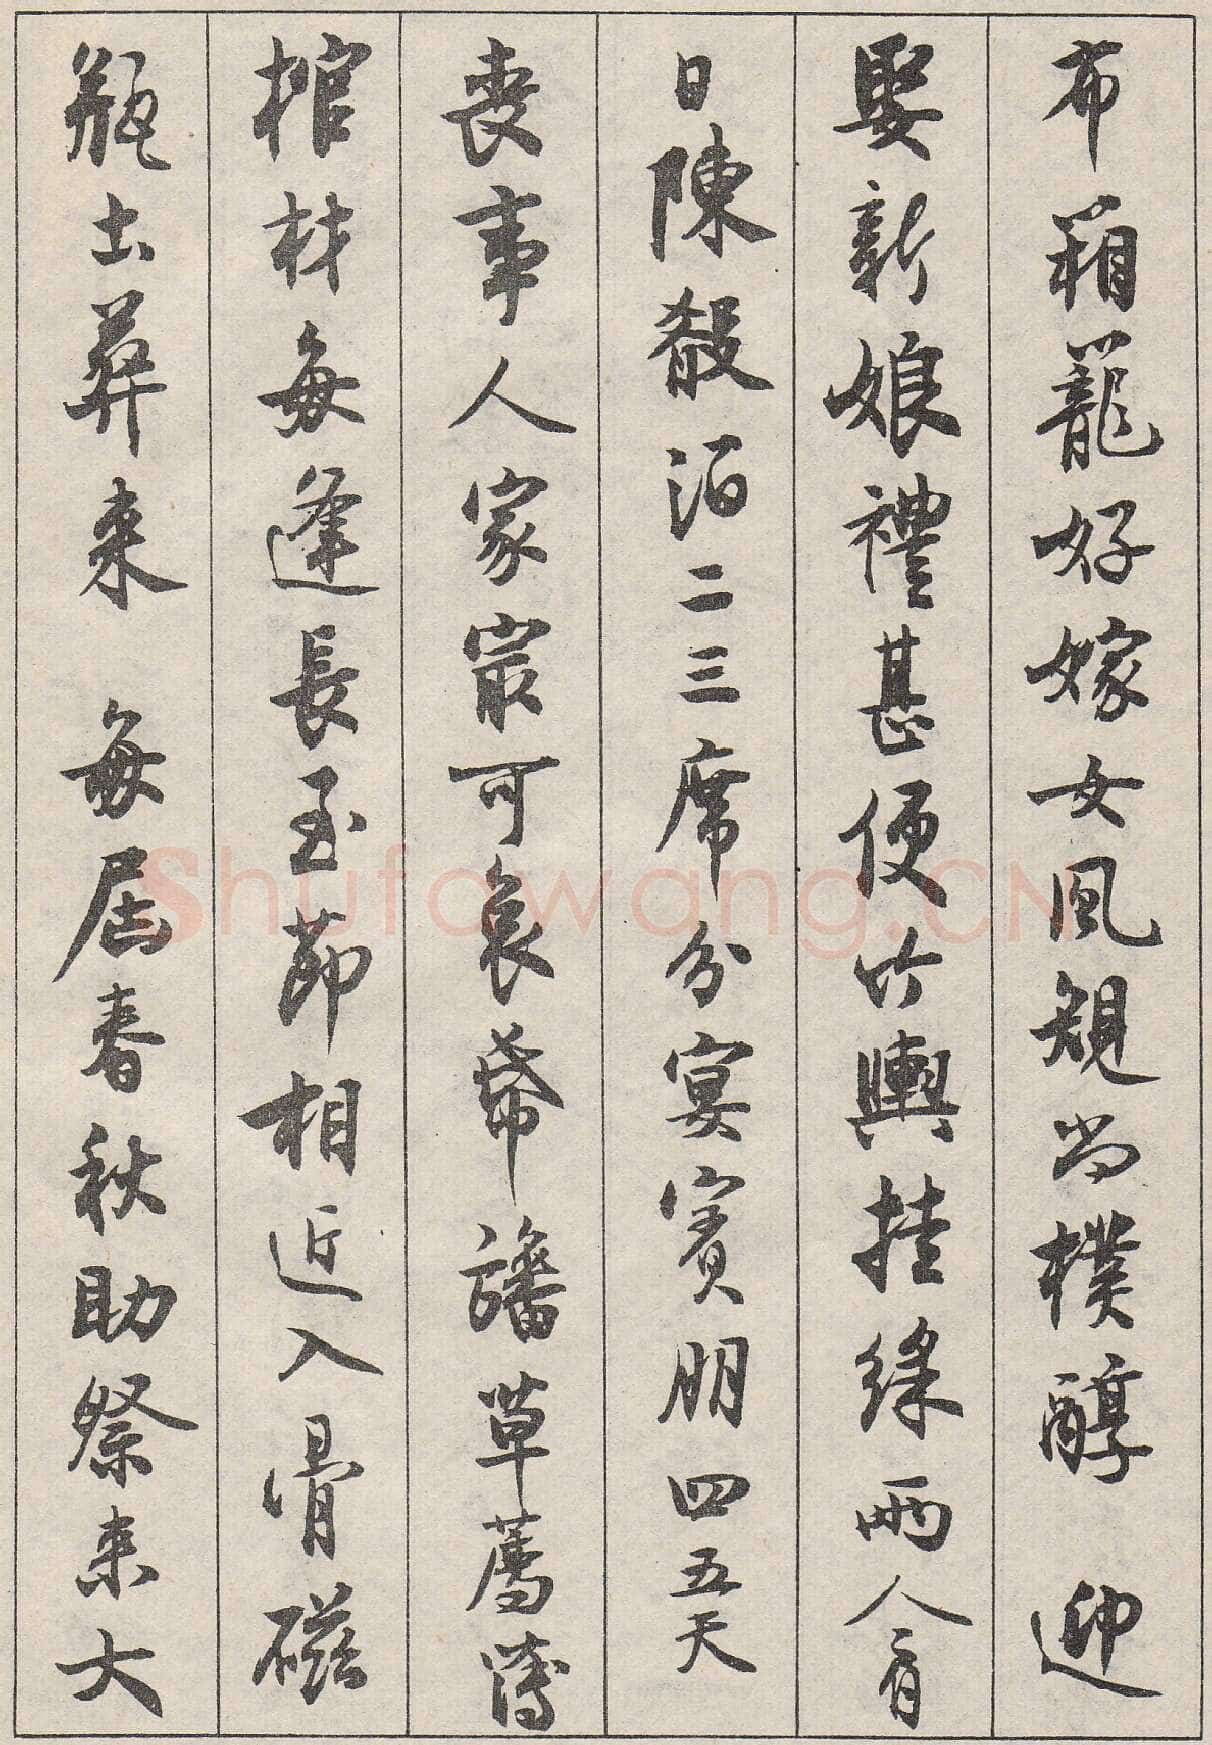 布箱籠好嫁女風規尚樸醇 迎
娶新娘禮甚便竹輿挂綵兩人肩
日陳殽酒二三席分宴賓朋四五天
喪事人家最可哀幣旛草薦薄
棺材每逢長至節相近入骨磁
瓶土葬來 每届春秋助祭来大
Shufawang.CN